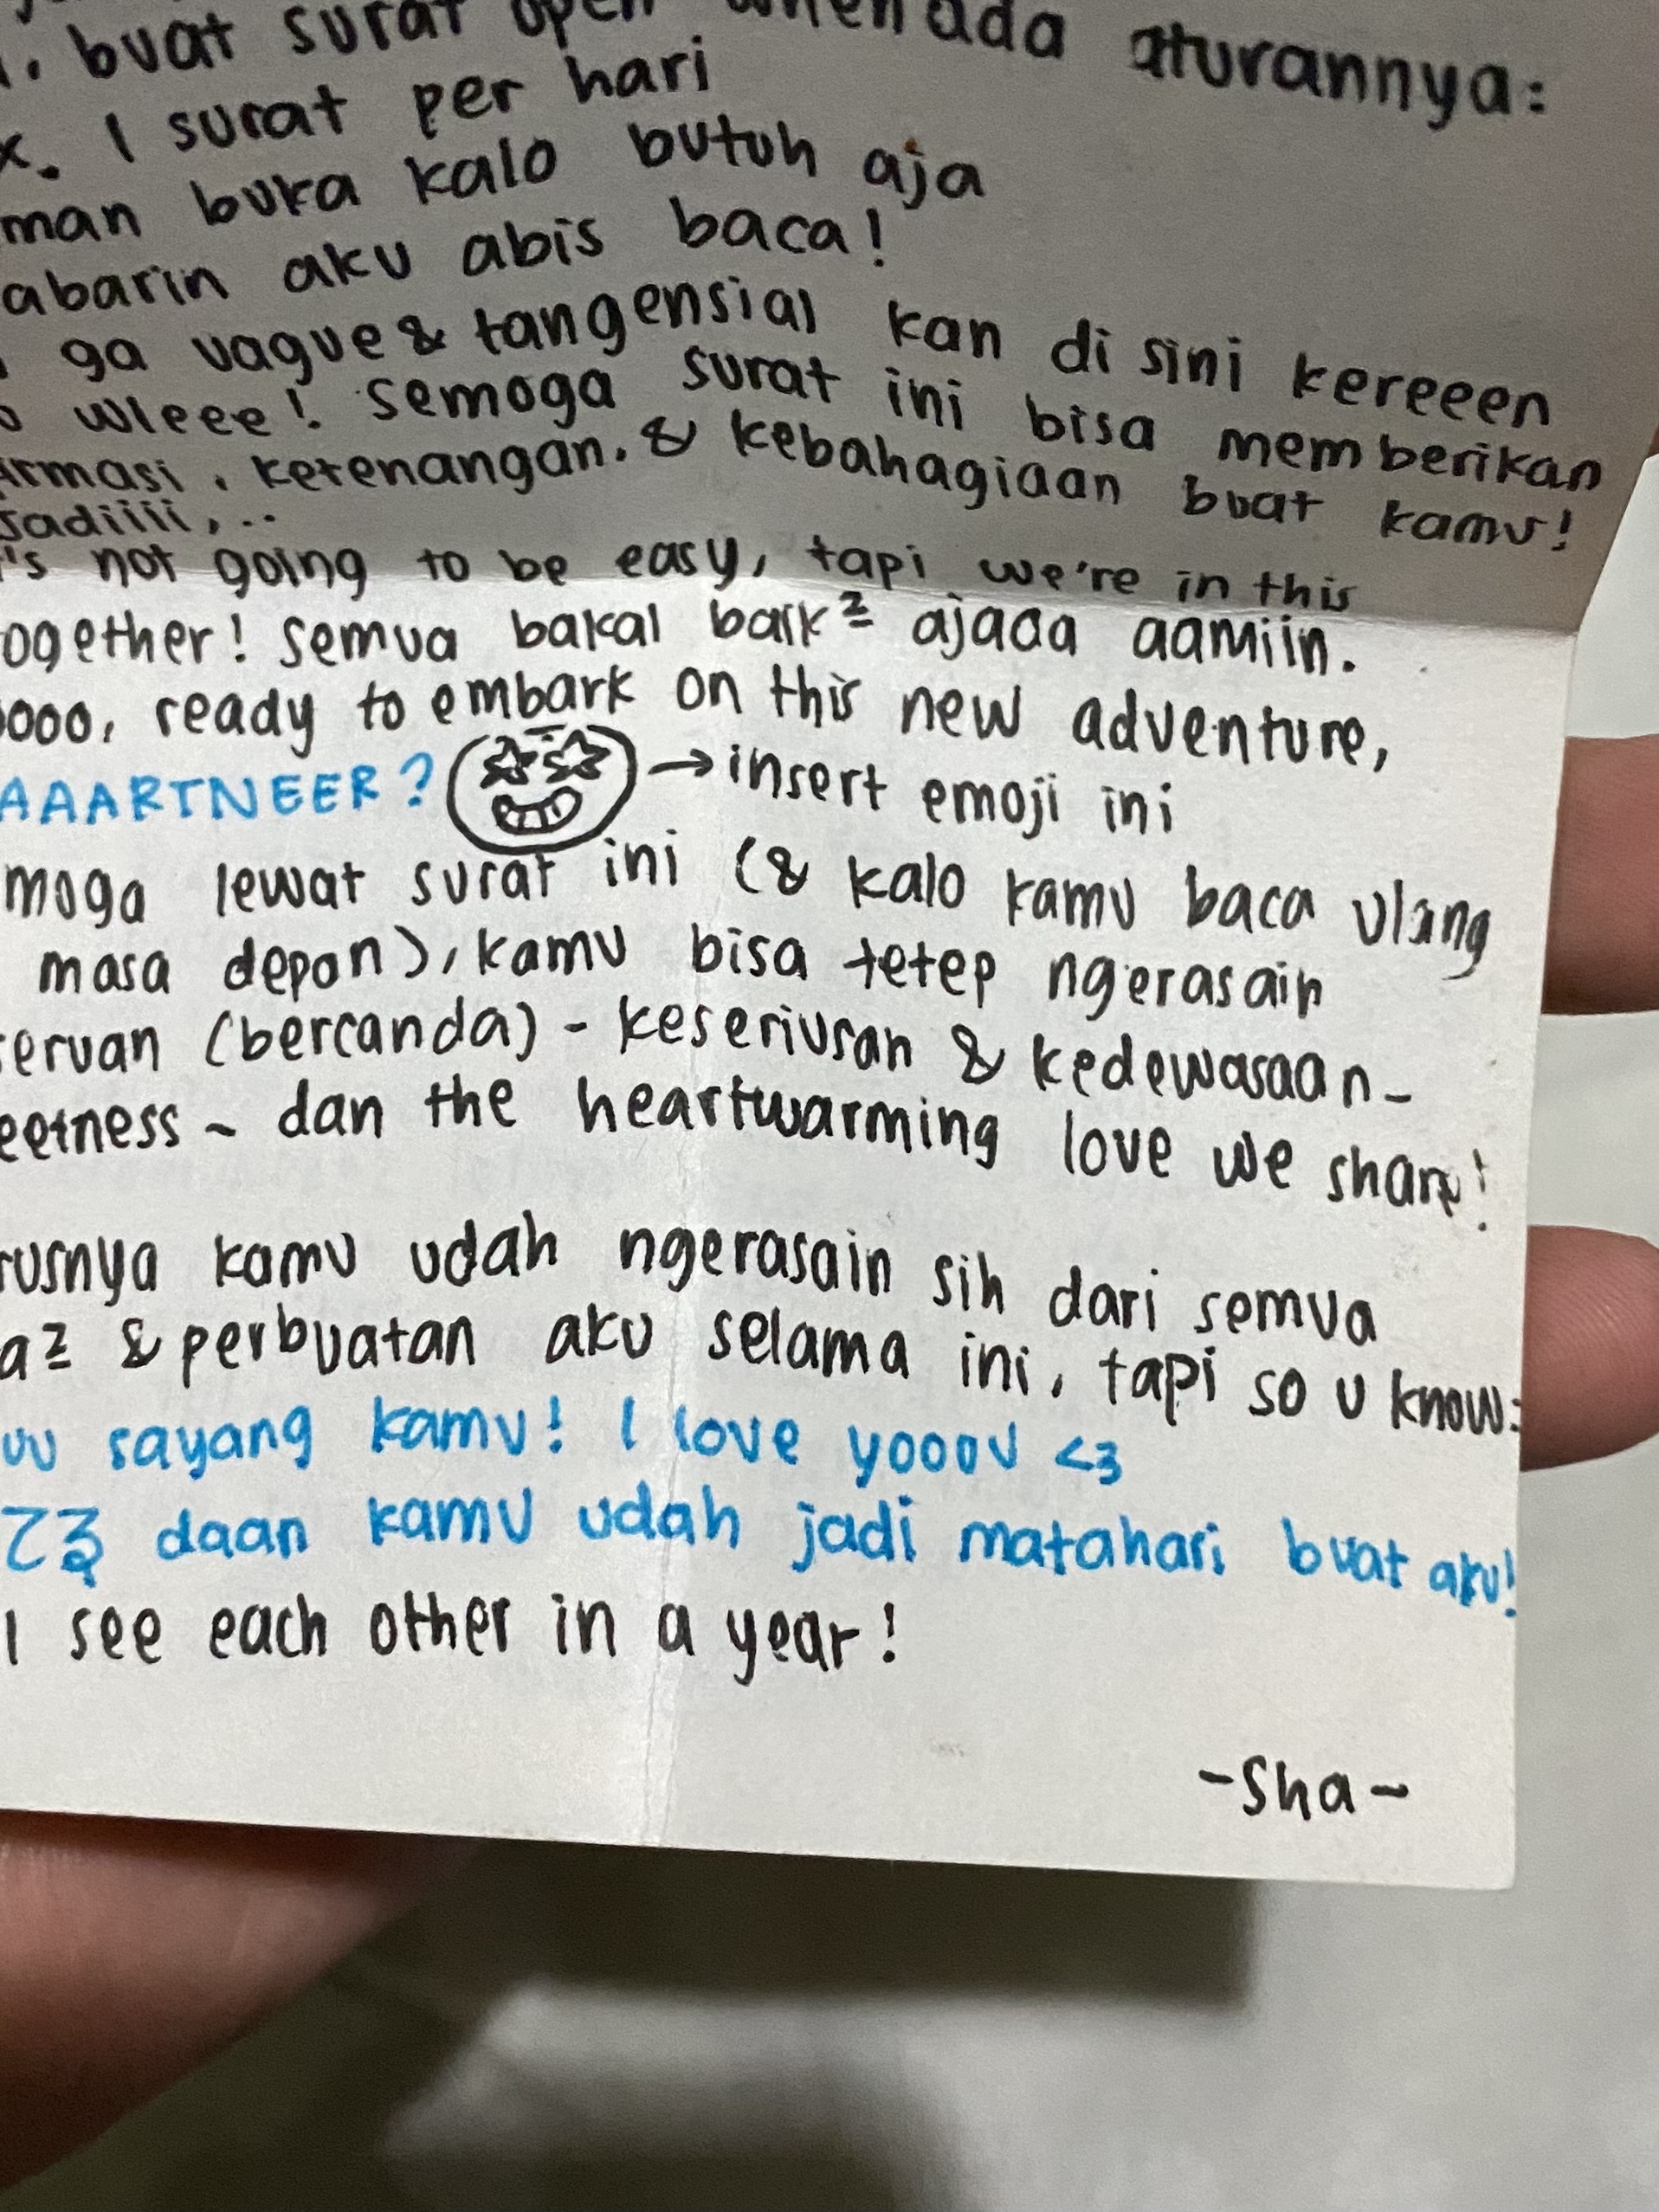 1. buat surat open when ada aturannya:
x. 1 surat per hari
man buka kalo butuh aja
abarin aku abis baca!
ga vague & tangensial kan di sini kereeen
o wleee! semoga surat ini bisa memberikan
irmasi, ketenangan, & kebahagiaan buat kamu!
Jadiiii,..
's not going to be easy, tapi we're in this
ogether! semua bakal baik² ajaaa aamiin.
oooo, ready to embark on this new adventure,
AAARTNEER? → insert emoji ini
moga lewat surat ini (& kalo kamu baca ulang
masa depan), kamu bisa tetep ngerasain
seruan (bercanda) - keseriusan & kedewasaan -
eetness ~ dan the heartwarming love we share!
rusnya kamu udah ngerasain sih dari semua
a² & perbuatan aku selama ini, tapi so u know:
uu sayang kamu! I love yooou <3
daan kamu udah jadi matahari buat aku!
l see each other in a year!
~Sha~